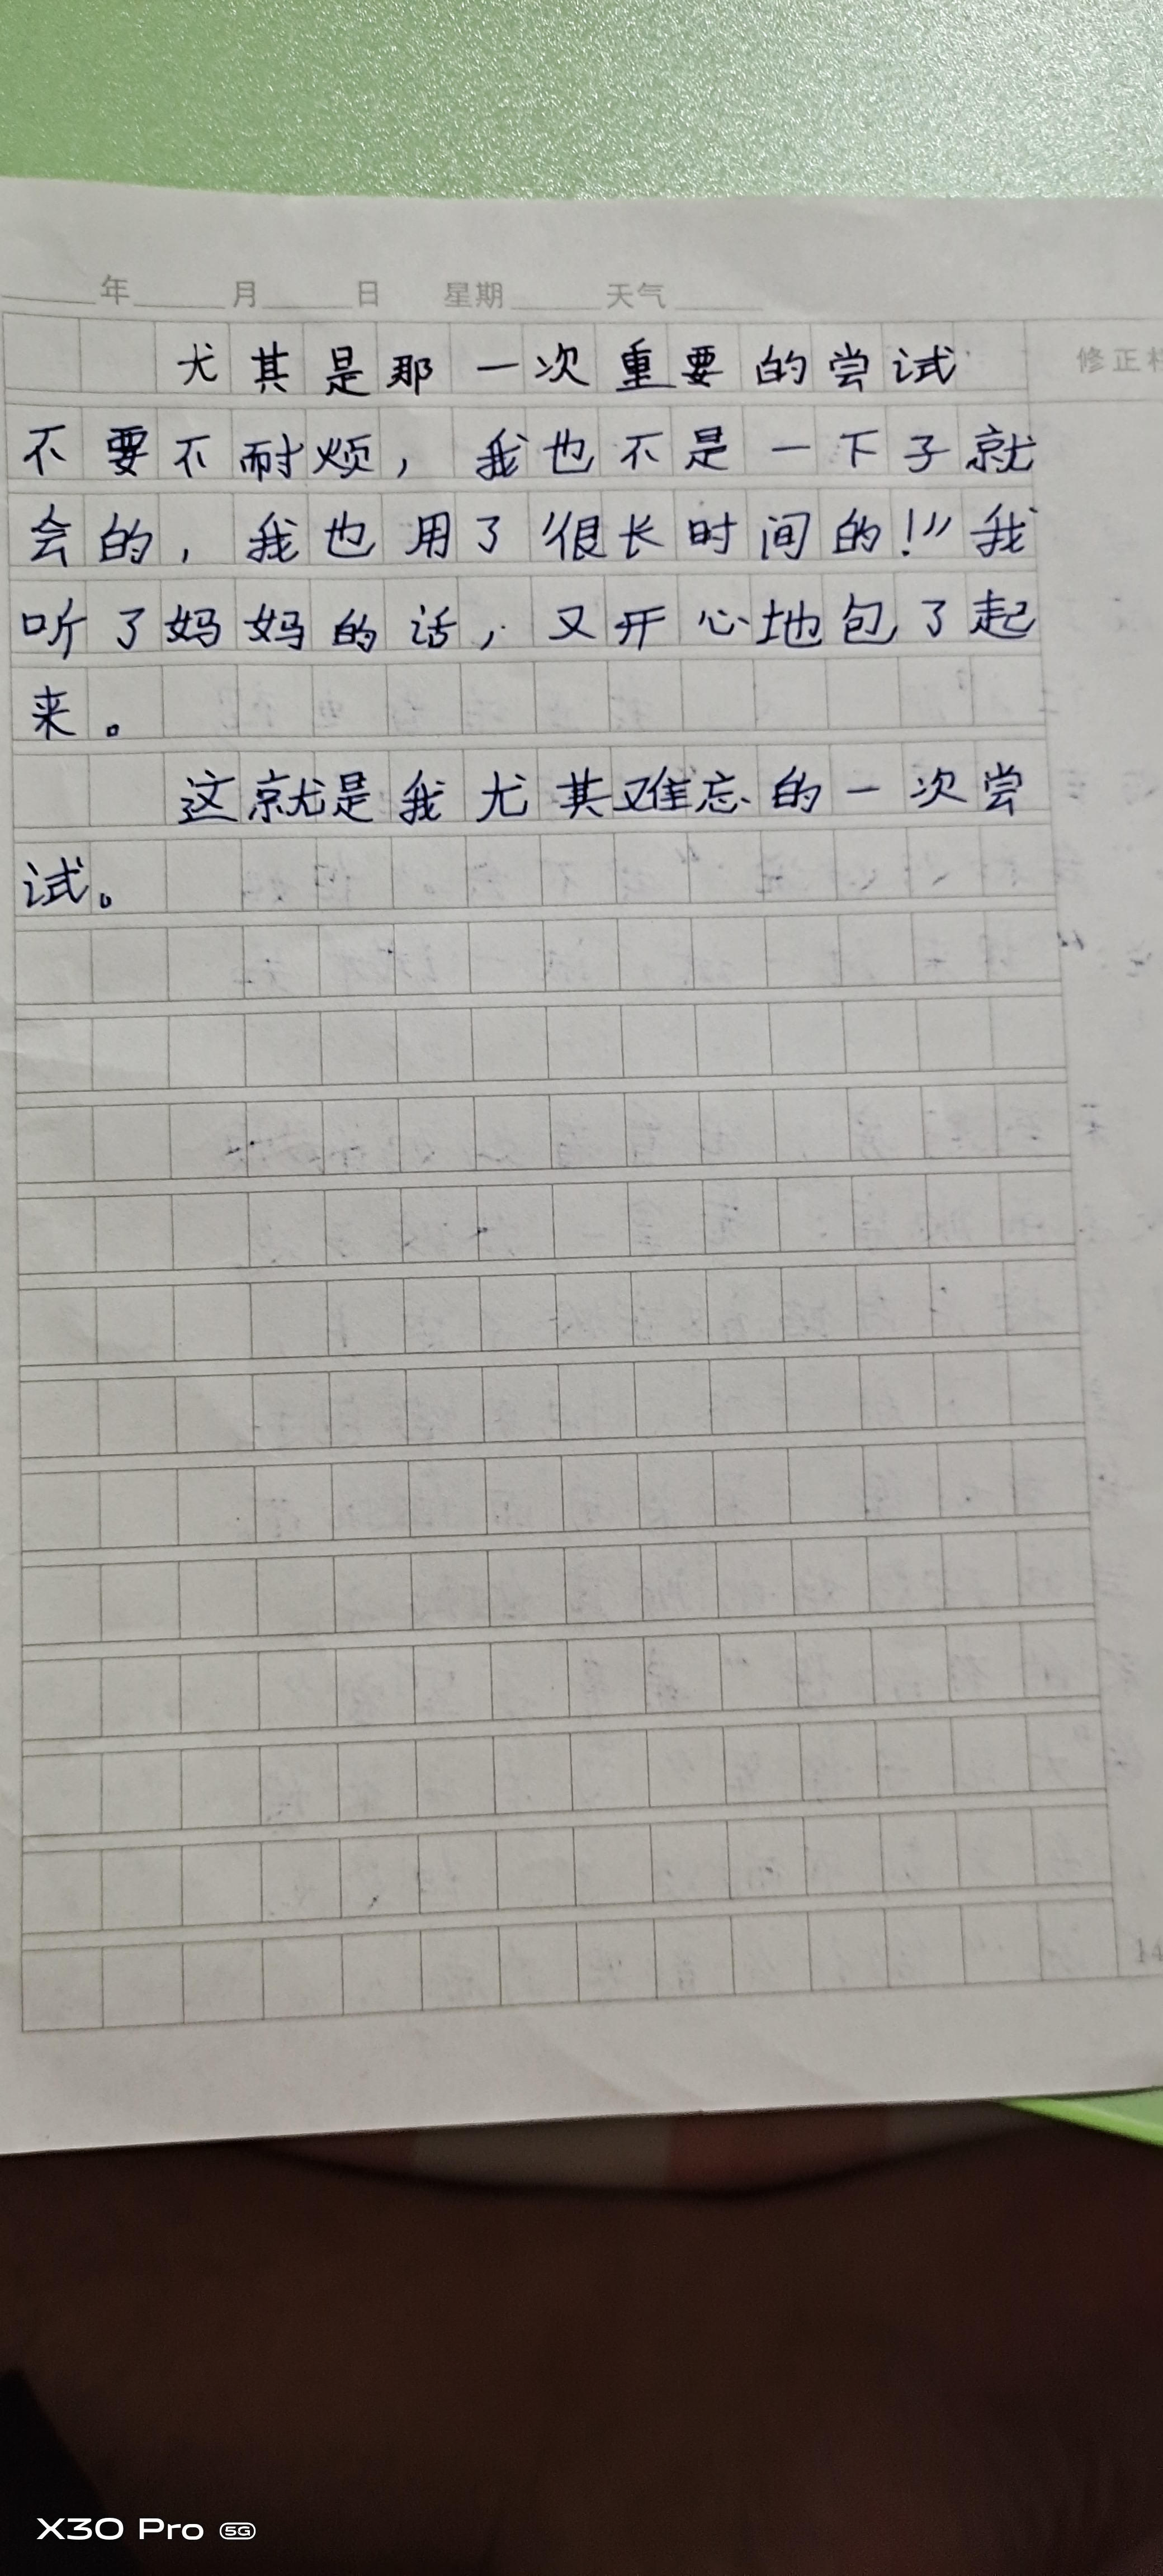 年 月 日 星期 天气
尤其是那一次重要的尝试
修正栏
不要不耐烦，我也不是一下子就
会的，我也用了很长时间的！”我
听了妈妈的话，又开心地包了起
来。
这就是我尤其难忘的一次尝
试。
14
X30 Pro 5G